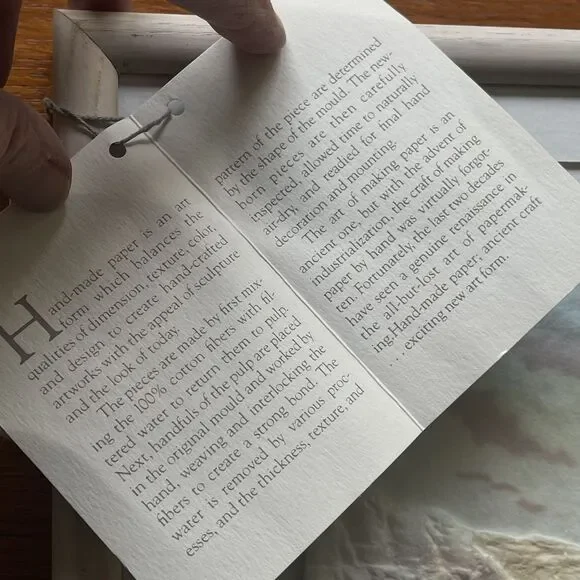 Hand-made paper is an art
form which balances the
qualities of dimension, texture, color,
and design to create hand-crafted
artworks with the appeal of sculpture
and the look of today.
The pieces are made by first mix-
ing the 100% cotton fibers with fil-
tered water to return them to pulp.
Next, handfuls of the pulp are placed
in the original mould and worked by
hand, weaving and interlocking the
fibers to create a strong bond. The
water is removed by various proc-
esses, and the thickness, texture, and
pattern of the piece are determined
by the shape of the mould. The new-
born pieces are then carefully
inspected, allowed time to naturally
air-dry, and readied for final hand
decoration and mounting.
The art of making paper is an
ancient one, but with the advent of
industrialization, the craft of making
paper by hand was virtually forgot-
ten. Fortunately, the last two decades
have seen a genuine renaissance in
the all-but-lost art of papermak-
ing. Hand-made paper; ancient craft
. . . exciting new art form.